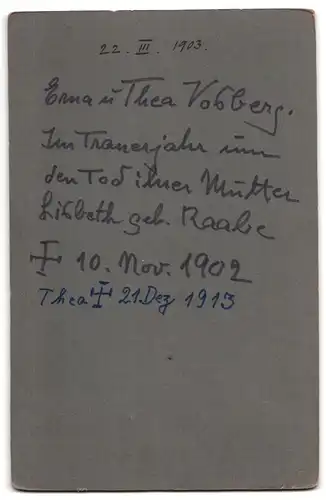 22. III. 1903.
Erna u Thea Voßberg.
Im Trauerjahr um
den Tod ihrer Mutter
Lisbeth geb. Raabe
† 10. Nov. 1902
Thea † 21. Dez 1913